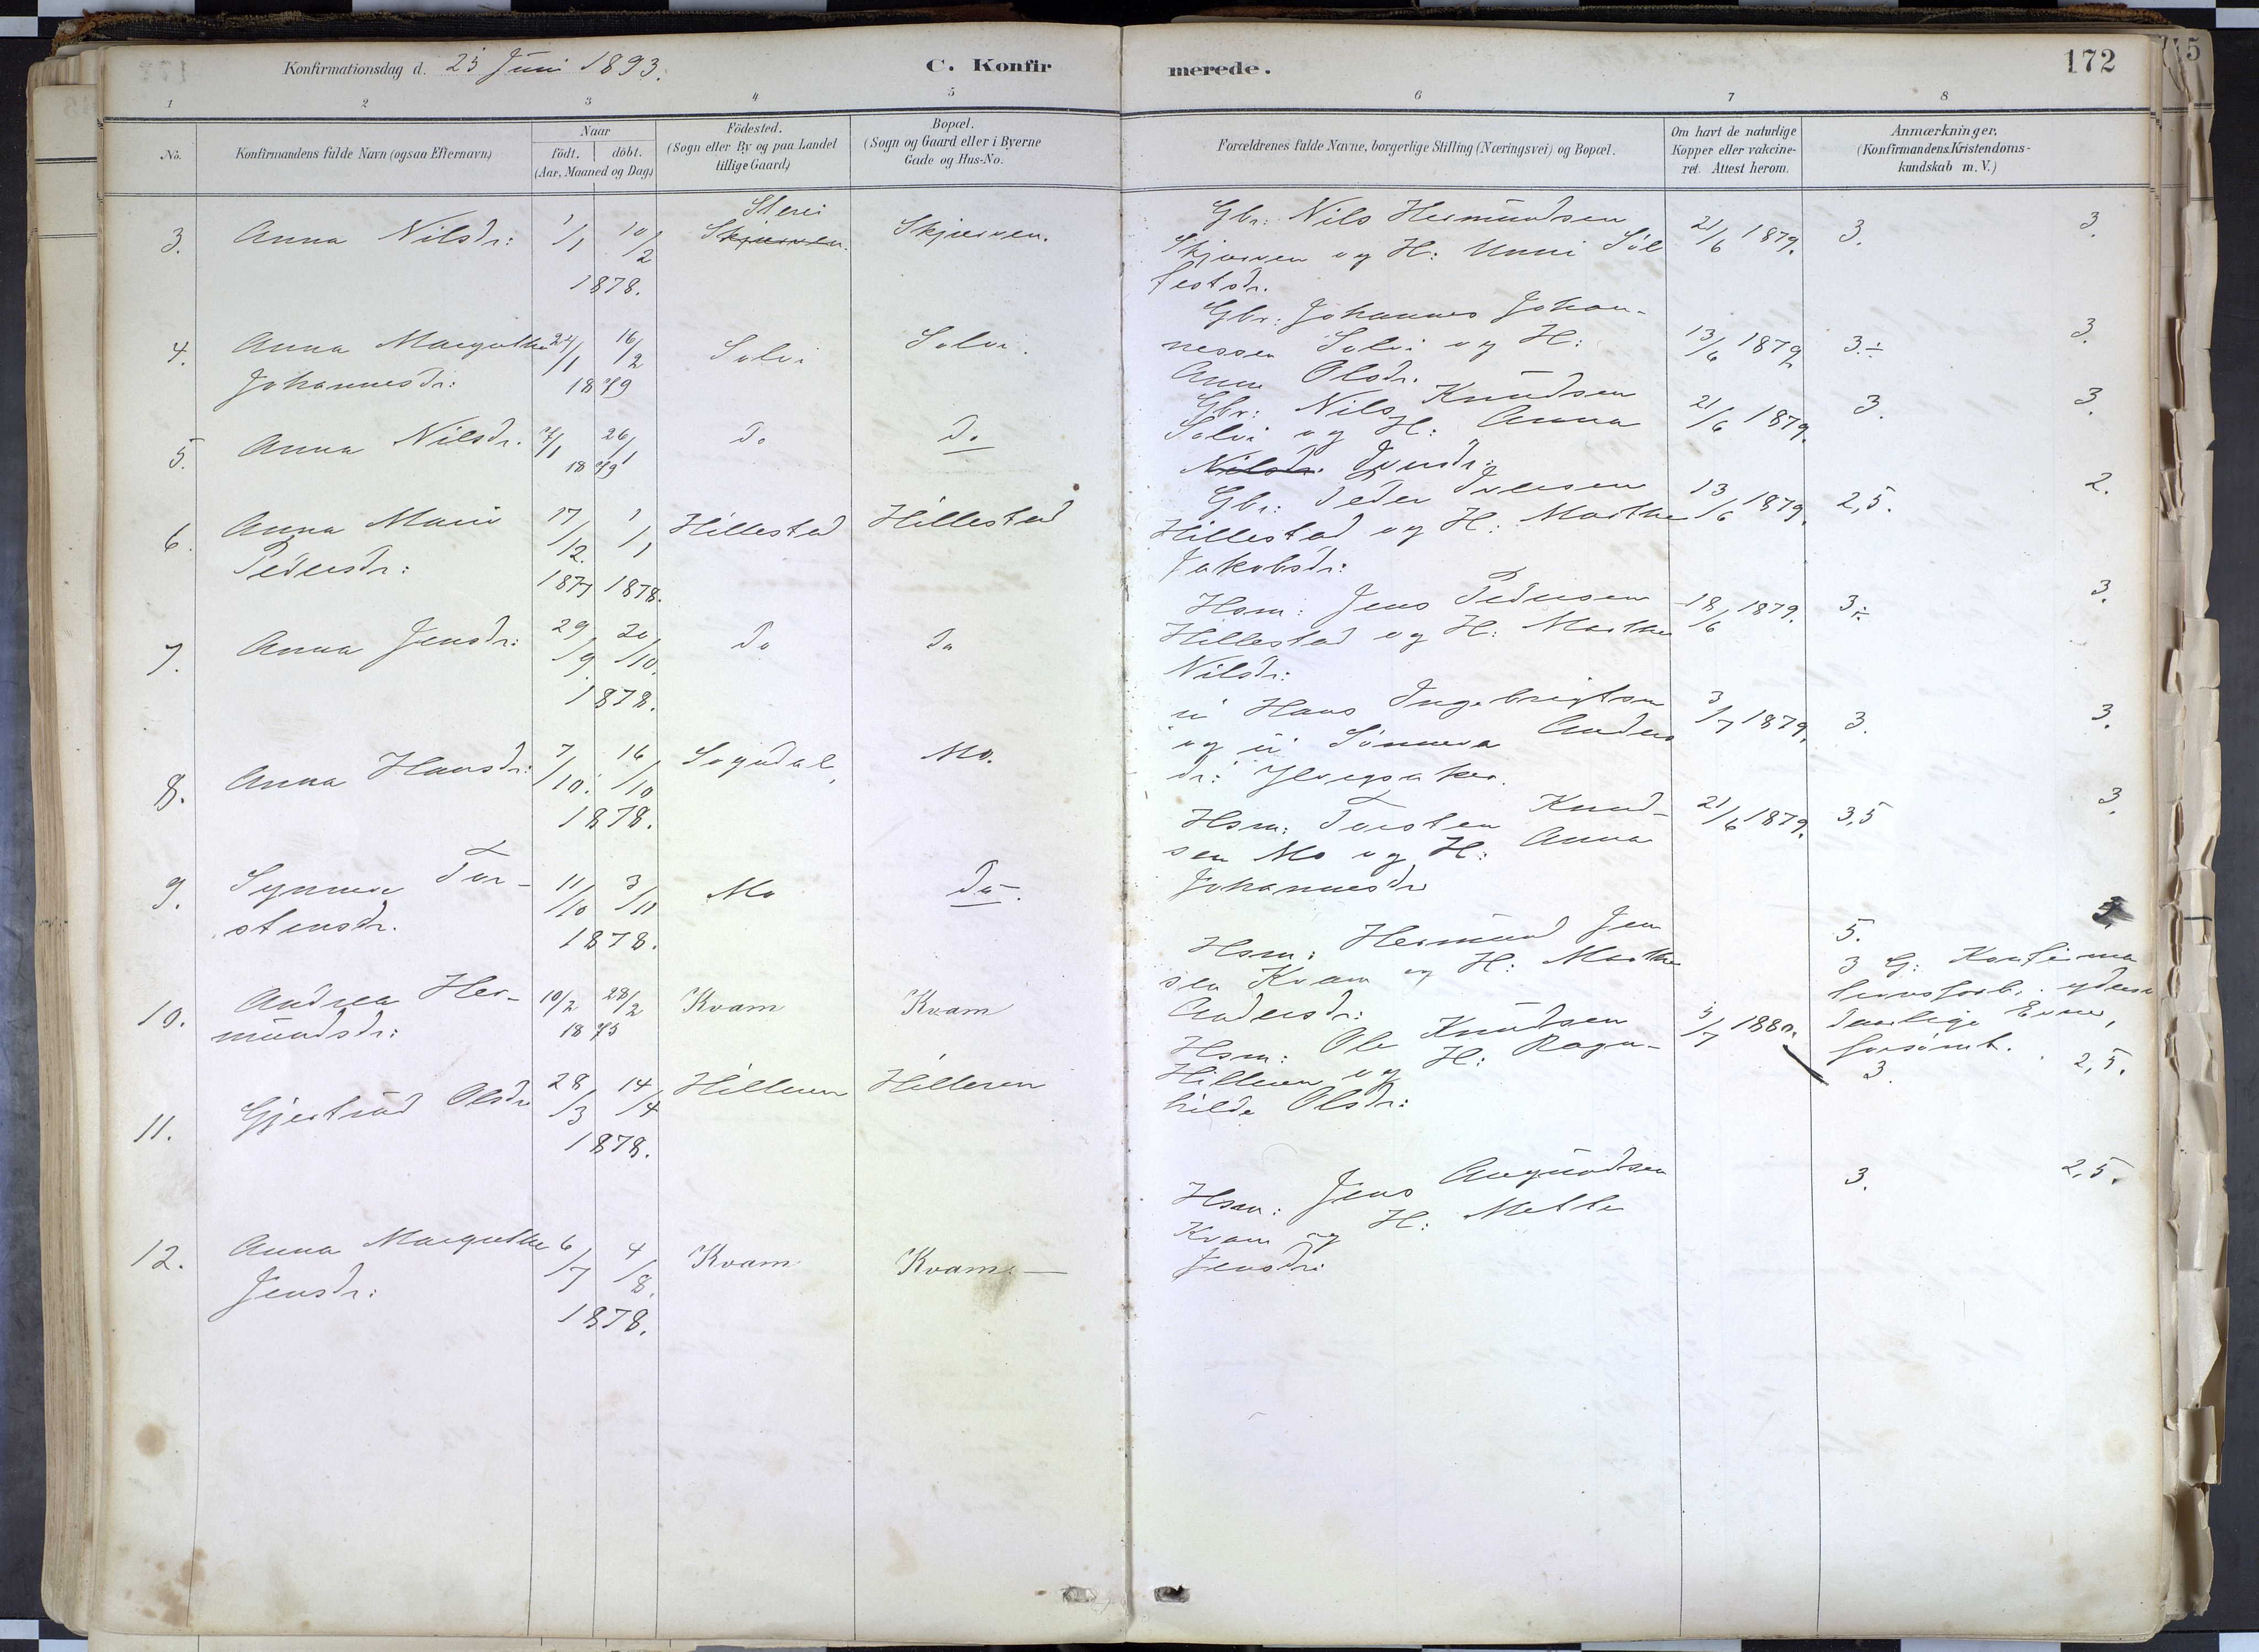 Konfirmationsdag d. 25 Juni 1893.
C. Konfirmerede.
172
1 2 3 4 5 6 7 8
No.
Konfirmandens fulde Navn (ogsaa Efternavn)
Naar
födt. döbt.
(Aar, Maaned og Dag)
Födested.
(Sogn eller By og paa Landet
tillige Gaard)
Bopæl.
(Sogn og Gaard eller i Byerne
Gade og Hus-No.
Forældrenes fulde Navne, borgerlige Stilling (Næringsvei) og Bopæl.
Om havt de naturlige
Kopper eller vakcine-
ret. Attest herom.
Anmærkninger.
(Konfirmandens Kristendoms-
kundskab m.V.)
3. Anna Nilsdr: 1/1 10/2 1878. Skjerven.
Gbr: Nils Hermundsen
Skjerven og H: Unni Söl
festsdr.
21/6 1879. 3. 3.
4. Anna Margrethe
Johannesdr: 24/1 16/2 1879 Solvi Solvi.
Gbr: Johannes Johan-
nessen Solvi og H:
Anna Olsdr.
13/6 1879 3.÷ 3.
5. Anna Nilsdr. 7/1 26/1 1879 do do
Gbr: Nils Knudsen
Solvi og H: Anna
Nilsdr. Iversdr:
21/6 1879. 3. 3.
6. Anna Marie
Pedersdr: 17/12. 1877 1/1 1878. Hillestad Hillestad
Gbr: Peder Iversen
Hillestad og H: Marthe
Jakobsdr:
13/6 1879. 2,5. 2.
7. Anna Jensdr: 29/9 20/10. 1878. do do
Hsm: Jens Pedersen
Hillestad og H: Marthe
Nilsdr:
18/6 1879. 3÷ 3.
8. Anna Hansdr: 7/10. 16/10 1878. Sogndal, Mo.
u' Hans Ingebrigtsen
og u' Sönneva Anders
dr:
3/7 1879. 3. 3.
9. Synneva Tor-
stensdr. 11/10 3/11 1878. Mo do.
Hsm: Torsten Knud-
sen Mo og H: Anna
Johannesdr
21/6 1879. 3,5 3.
10. Andrea Her-
mundsdr: 10/2 28/2 1875 Kvam Kvam
Hsm: Hermund Jen
sen Kvam og H: Marthe
Andersdr:
5.
3 G: Konfirma
tionsforb. yderst
daarlige Evner,
forsömt.
11. Gjertrud Olsdr 28/3 14/4 1878. Hilleren Hilleren
Hsm: Ole Knudsen
Hilleren og H: Ragn-
hilde Olsdr:
5/7 1880. 3. 2,5.
12. Anna Margrethe
Jensdr: 6/7 4/8. 1878. Kvam Kvam.
Hsm: Jens Amundsen
Kvam og H: Mette
Jensdr:
3. 2,5.